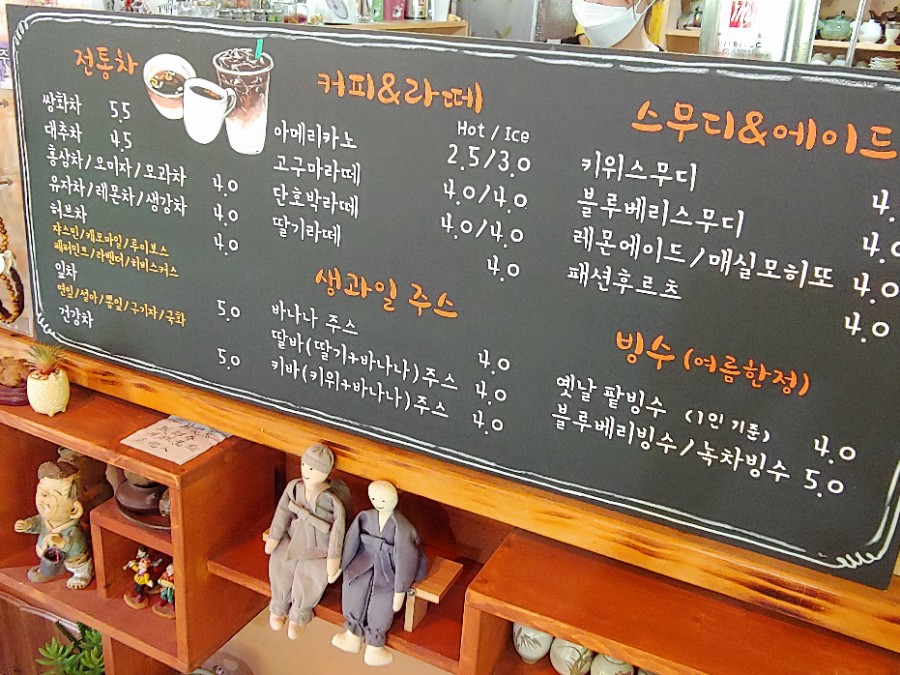 전통차
쌍화차 5.5
대추차 4.5
홍삼차/오미자/모과차 4.0
유자차/레몬차/생강차 4.0
허브차 4.0
쟈스민/캐모마일/루이보스
페퍼민트/라벤더/히비스커스
잎차 5.0
연잎/설아/뽕잎/구기자/국화
건강차 5.0
커피&라떼
Hot / Ice
아메리카노 2.5/3.0
고구마라떼 4.0/4.0
단호박라떼 4.0/4.0
딸기라떼 4.0
생과일 주스
바나나 주스 4.0
딸바(딸기+바나나)주스 4.0
키바(키위+바나나)주스 4.0
스무디&에이드
키위스무디 4.
블루베리스무디 4.0
레몬에이드/매실모히또 4.0
패션후르츠 4.0
빙수 (여름한정)
옛날 팥빙수 (1인 기준) 4.0
블루베리빙수/녹차빙수 5.0